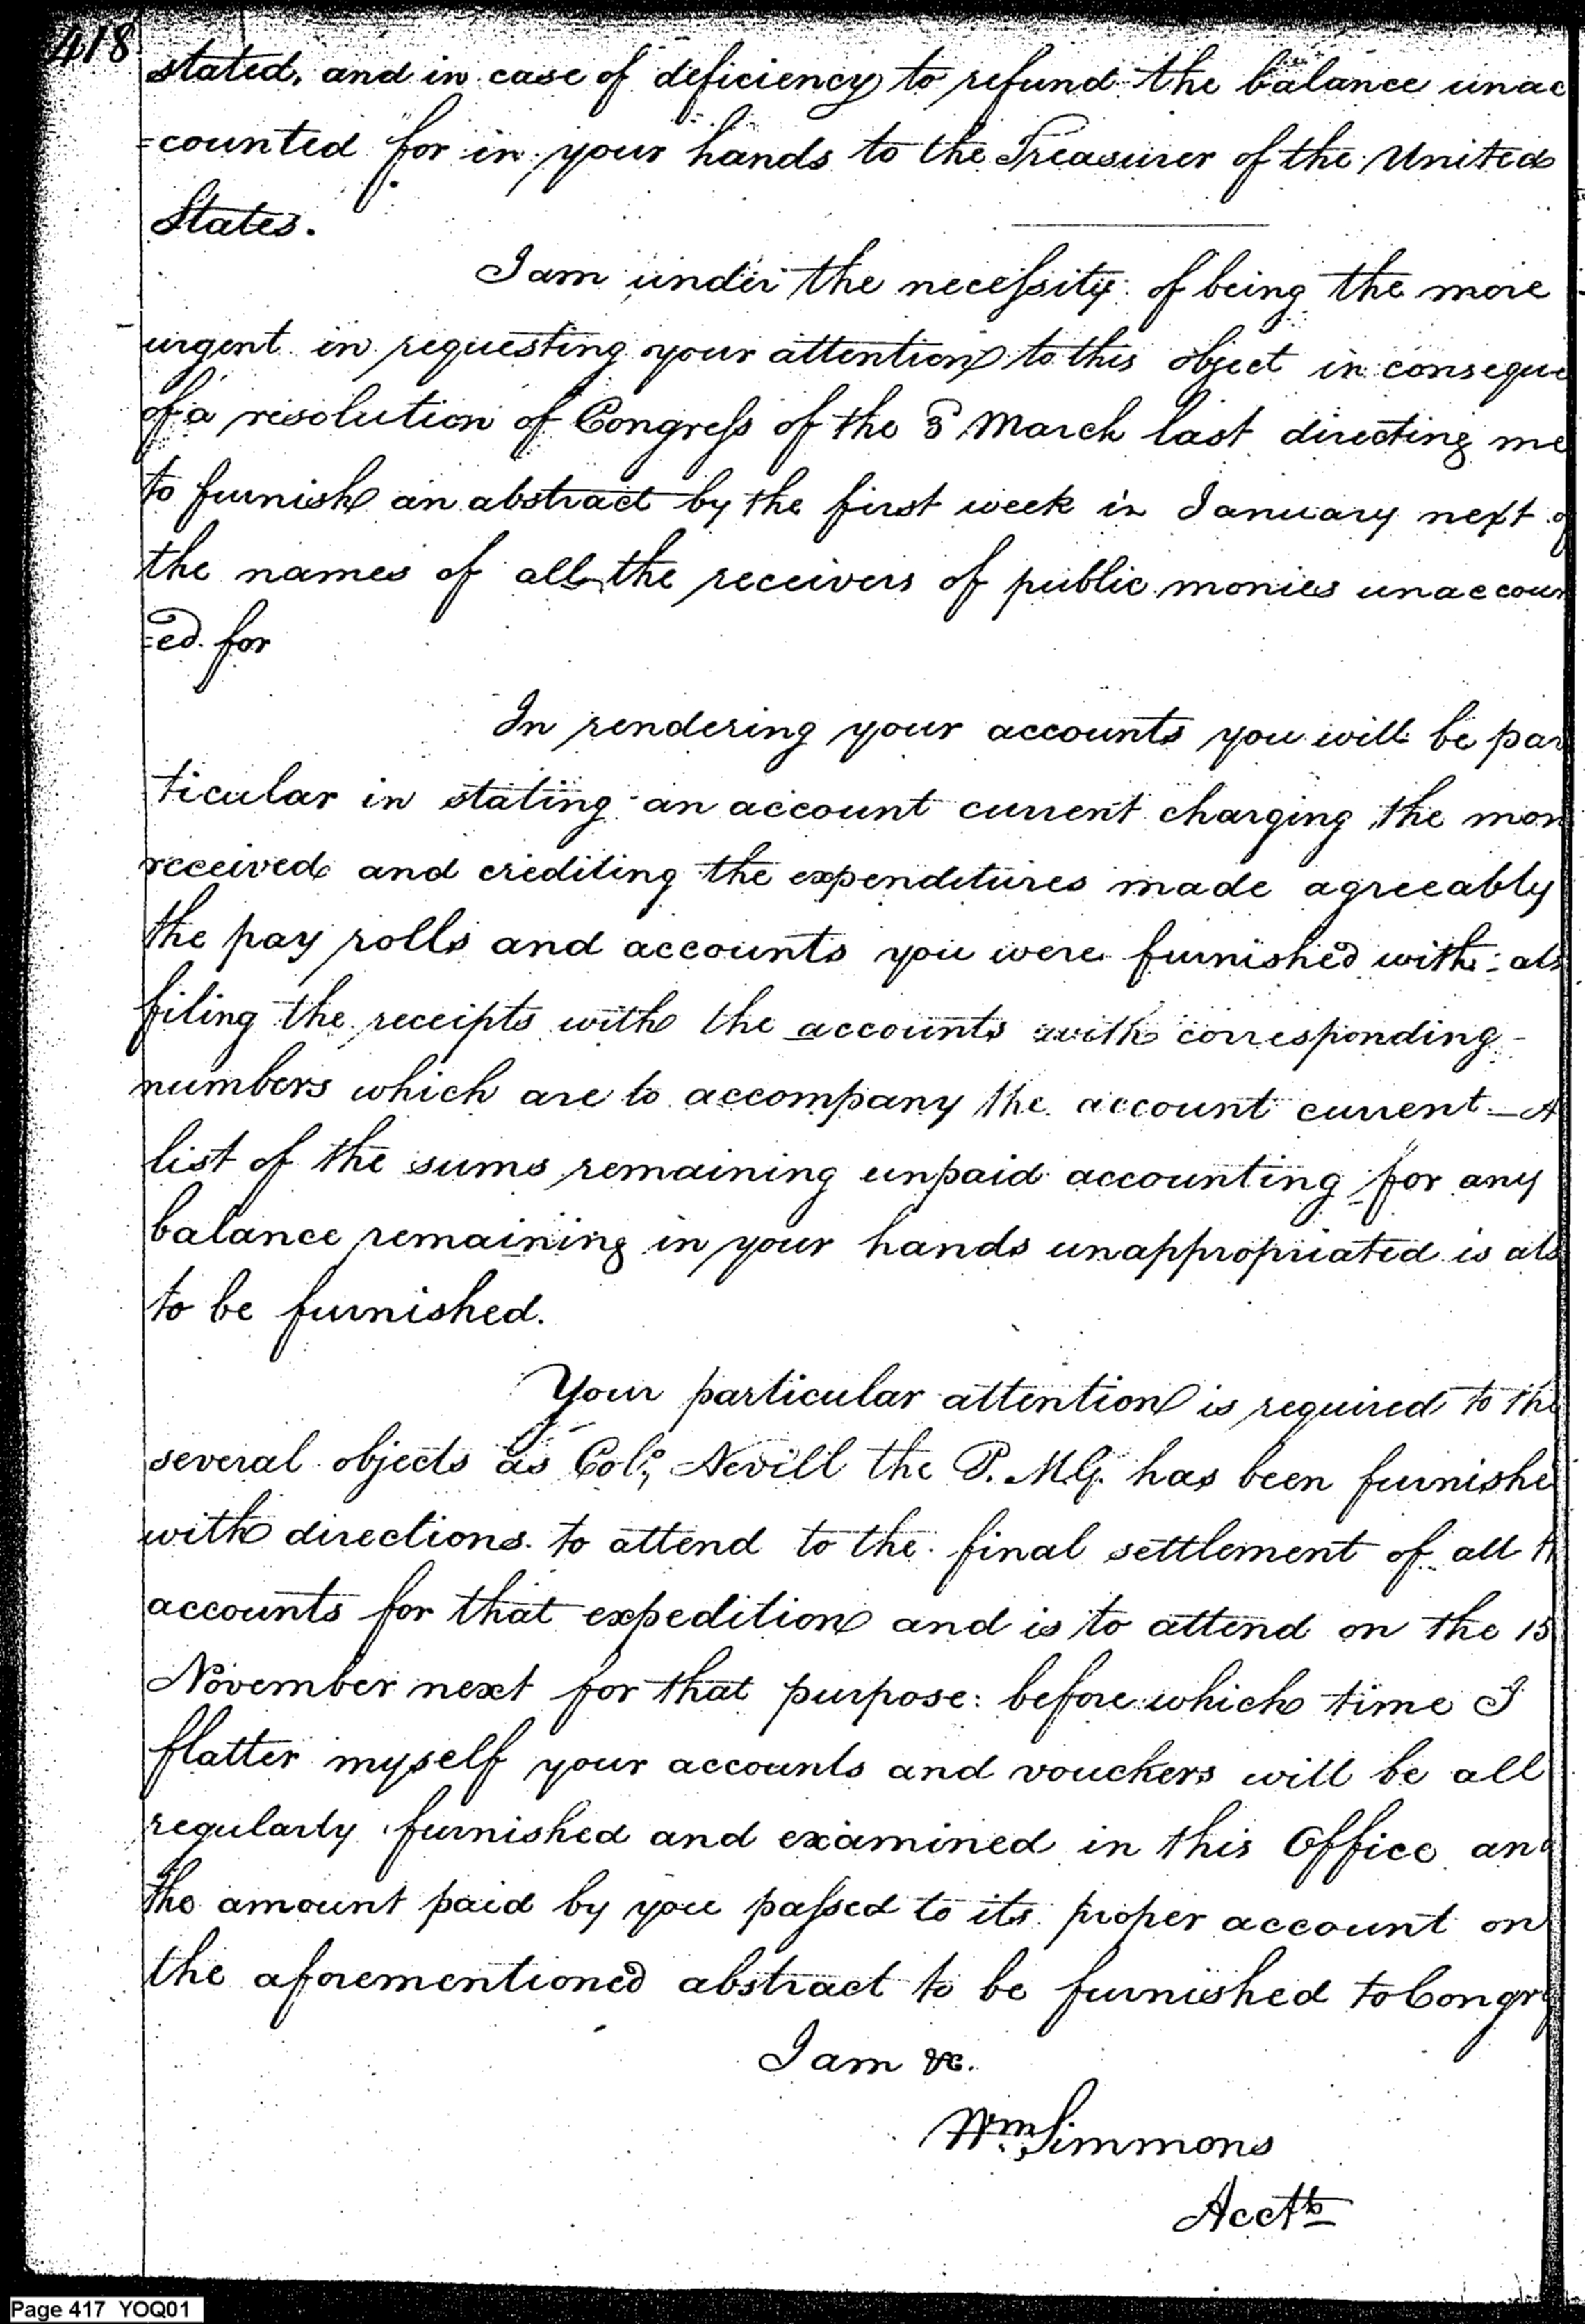 418
stated, and in case of deficiency to refund the balance unac
=counted for in your hands to the Treasurer of the United
States.
I am under the necessity of being the more
urgent in requesting your attention to this object in conseque
of a resolution of Congress of the 3 March last directing me
to furnish an abstract by the first week in January next o
the names of all the receivers of public monies unaccoun
=ed for
In rendering your accounts you will be par
ticular in stating an account current charging the mon
received and crediting the expenditures made agreeably
the pay rolls and accounts you were furnished with: als
filing the receipts with the accounts with corresponding
numbers which are to accompany the account current — A
list of the sums remaining unpaid accounting for any
balance remaining in your hands unappropriated is als
to be furnished.
Your particular attention is required to the
several objects as Colo, Nevill the P. M. G. has been furnishe
with directions to attend to the final settlement of all th
accounts for that expedition and is to attend on the 15
November next for that purpose: before which time I
flatter myself your accounts and vouchers will be all
regularly furnished and examined in this Office and
the amount paid by you passed to its proper account on
the aforementioned abstract to be furnished to Congre
I am &c.
Wm Simmons
Acctt
Page 417 YOQ01